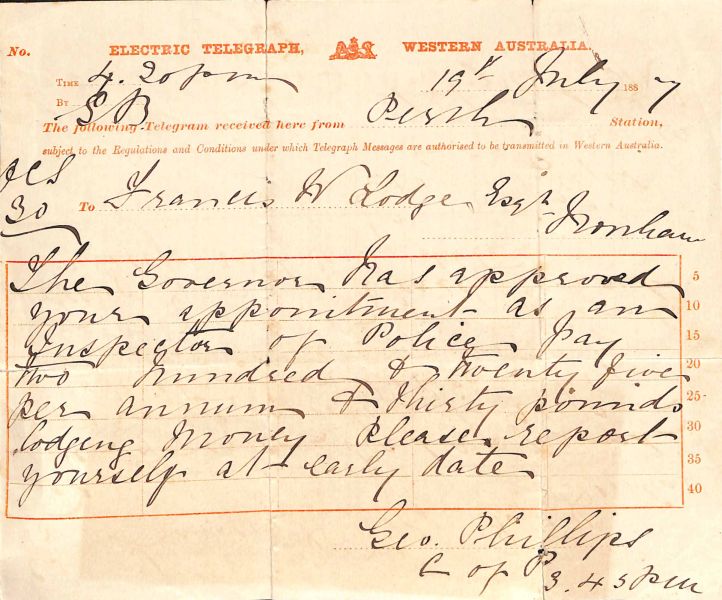 No. ELECTRIC TELEGRAPH, WESTERN AUSTRALIA.
TIME 4.20 pm 19th July 1887
BY SB
The following Telegram received here from Perth Station,
subject to the Regulations and Conditions under which Telegraph Messages are authorised to be transmitted in Western Australia.
30
To Francis W Lodge Esqr
The Governor has approved 5
your appointment as an 10
Inspector of Police Pay 15
two hundred & twenty five 20
per annum & thirty pounds 25
lodging money Please report 30
yourself at early date 35
40
Geo. Phillips
C of P 3.45 pm